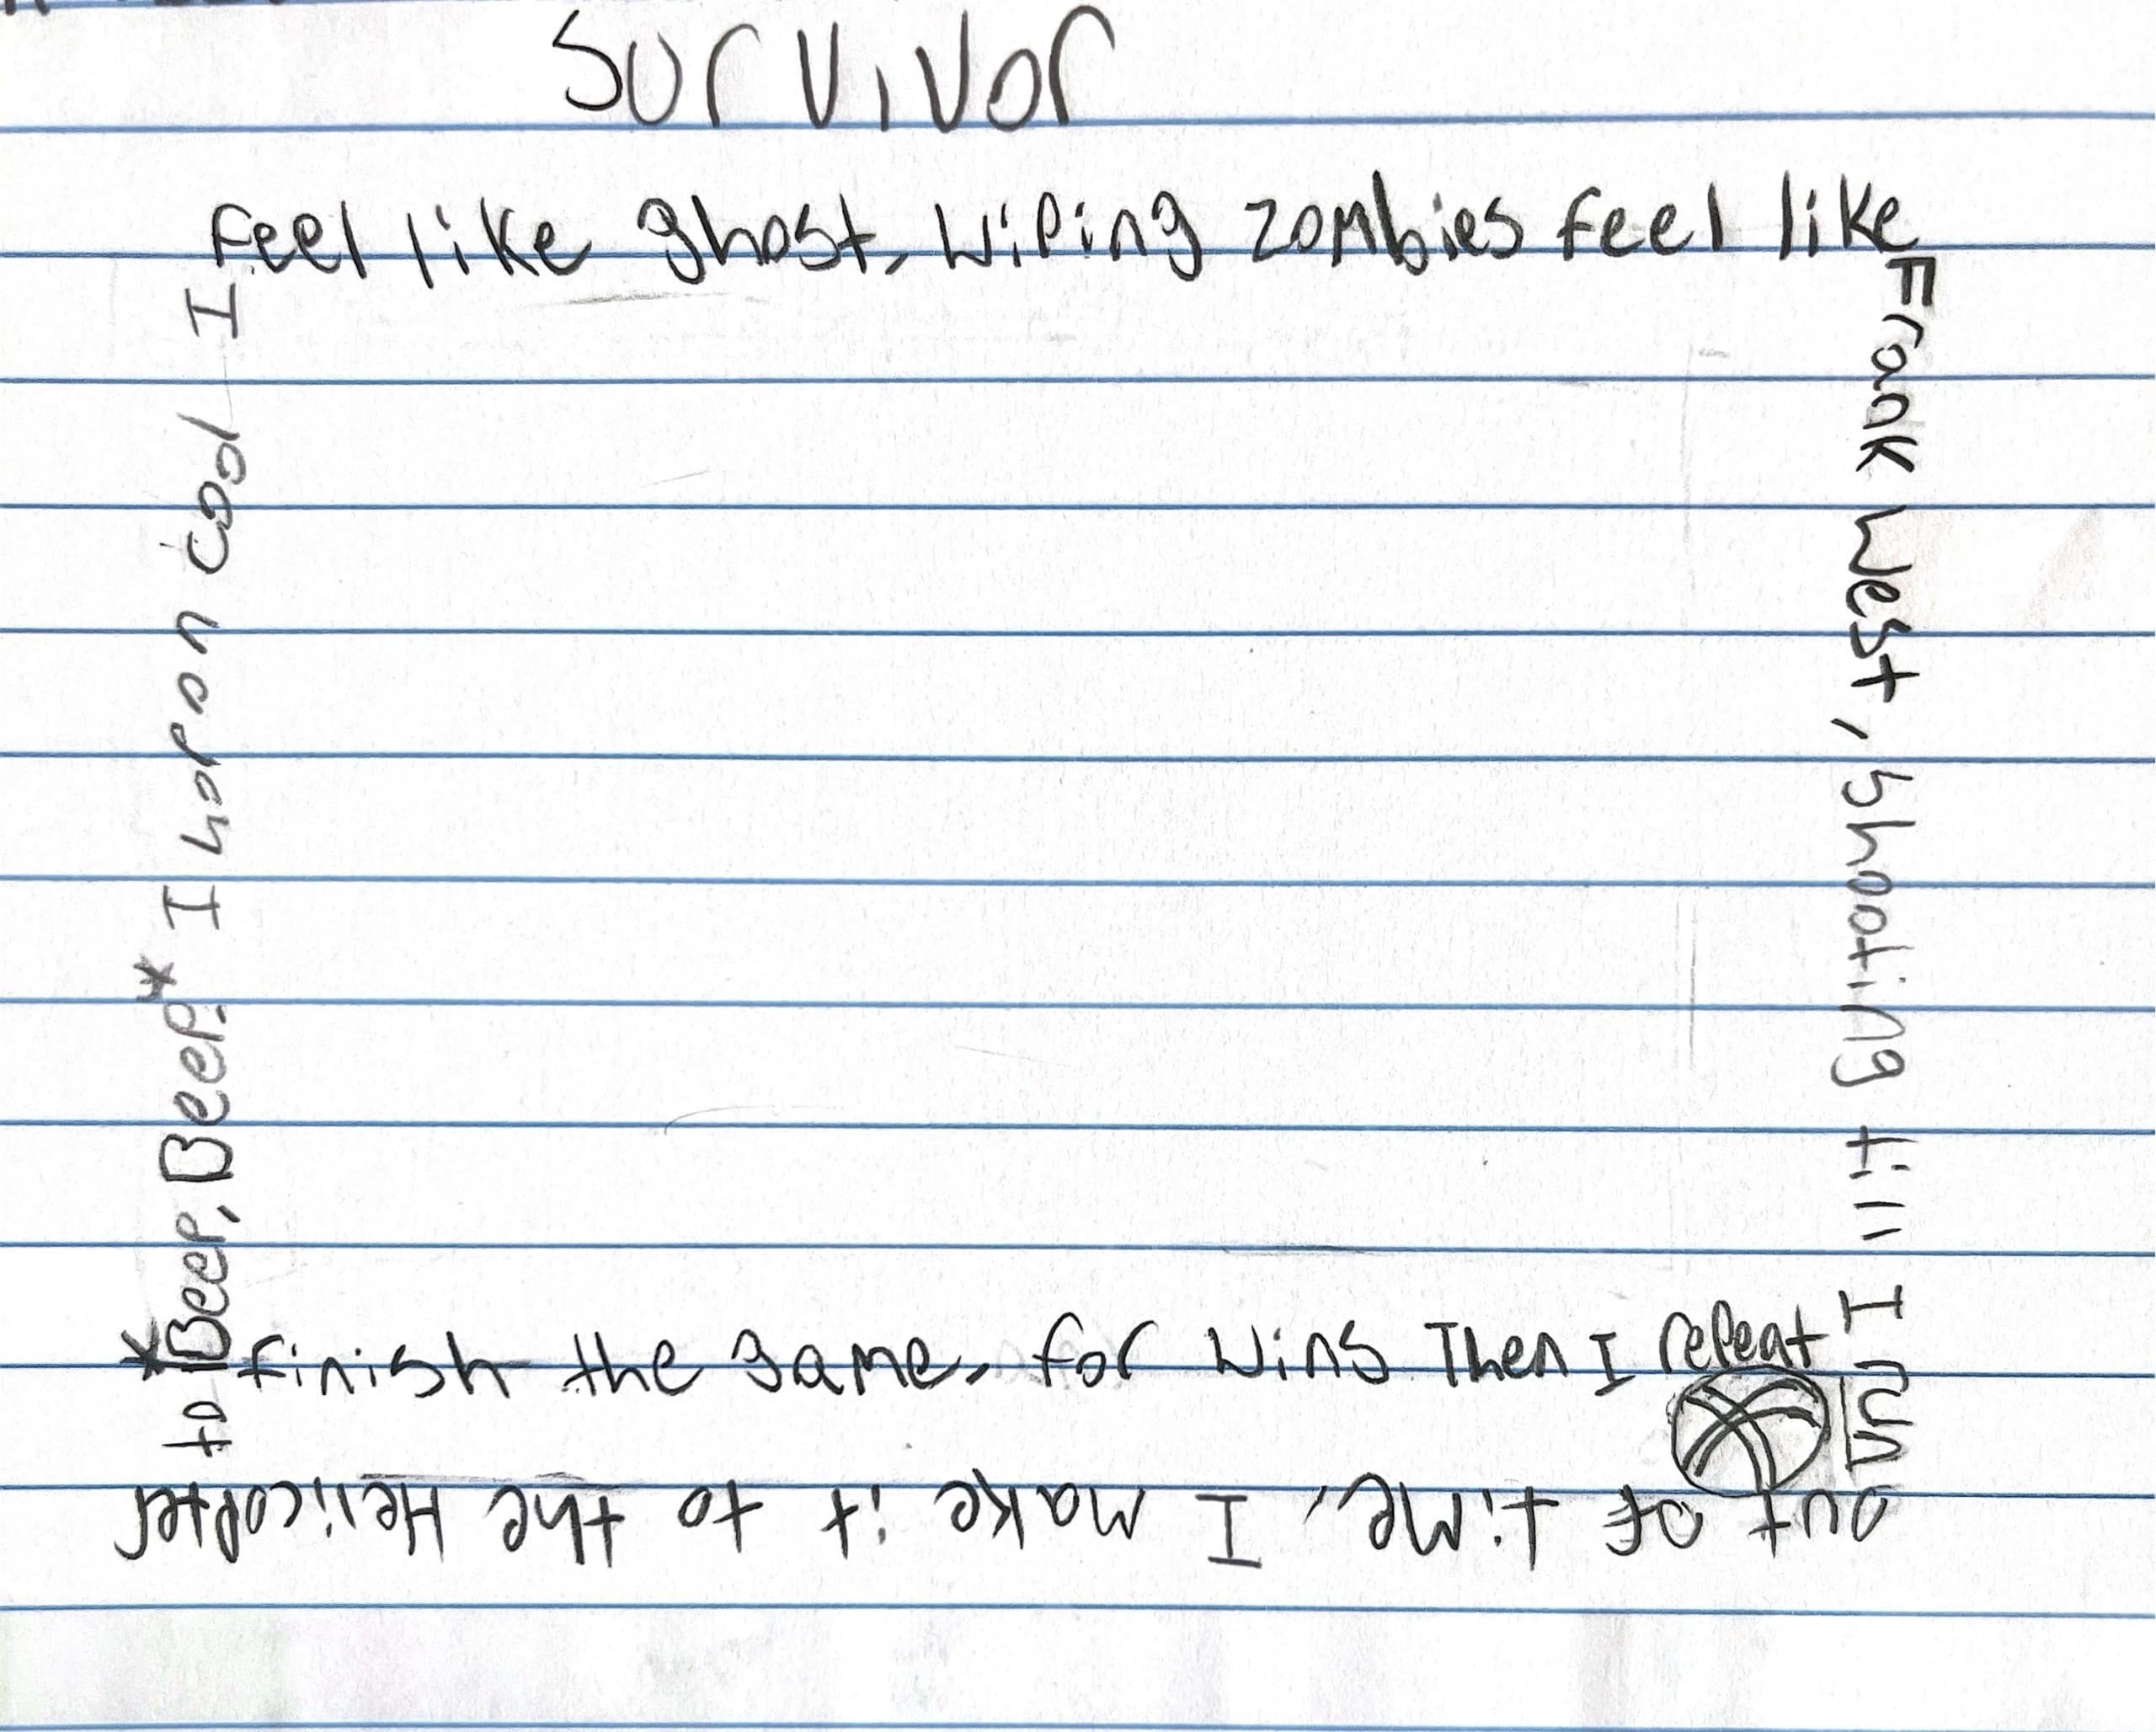 Survivor
*Beep, Beep.* I hop on cool I
feel like ghost, wiping zombies feel like
Frank West, shooting till I run
out of time, I make it to the Helicopter
to
finish the game, for wins Then I repeat